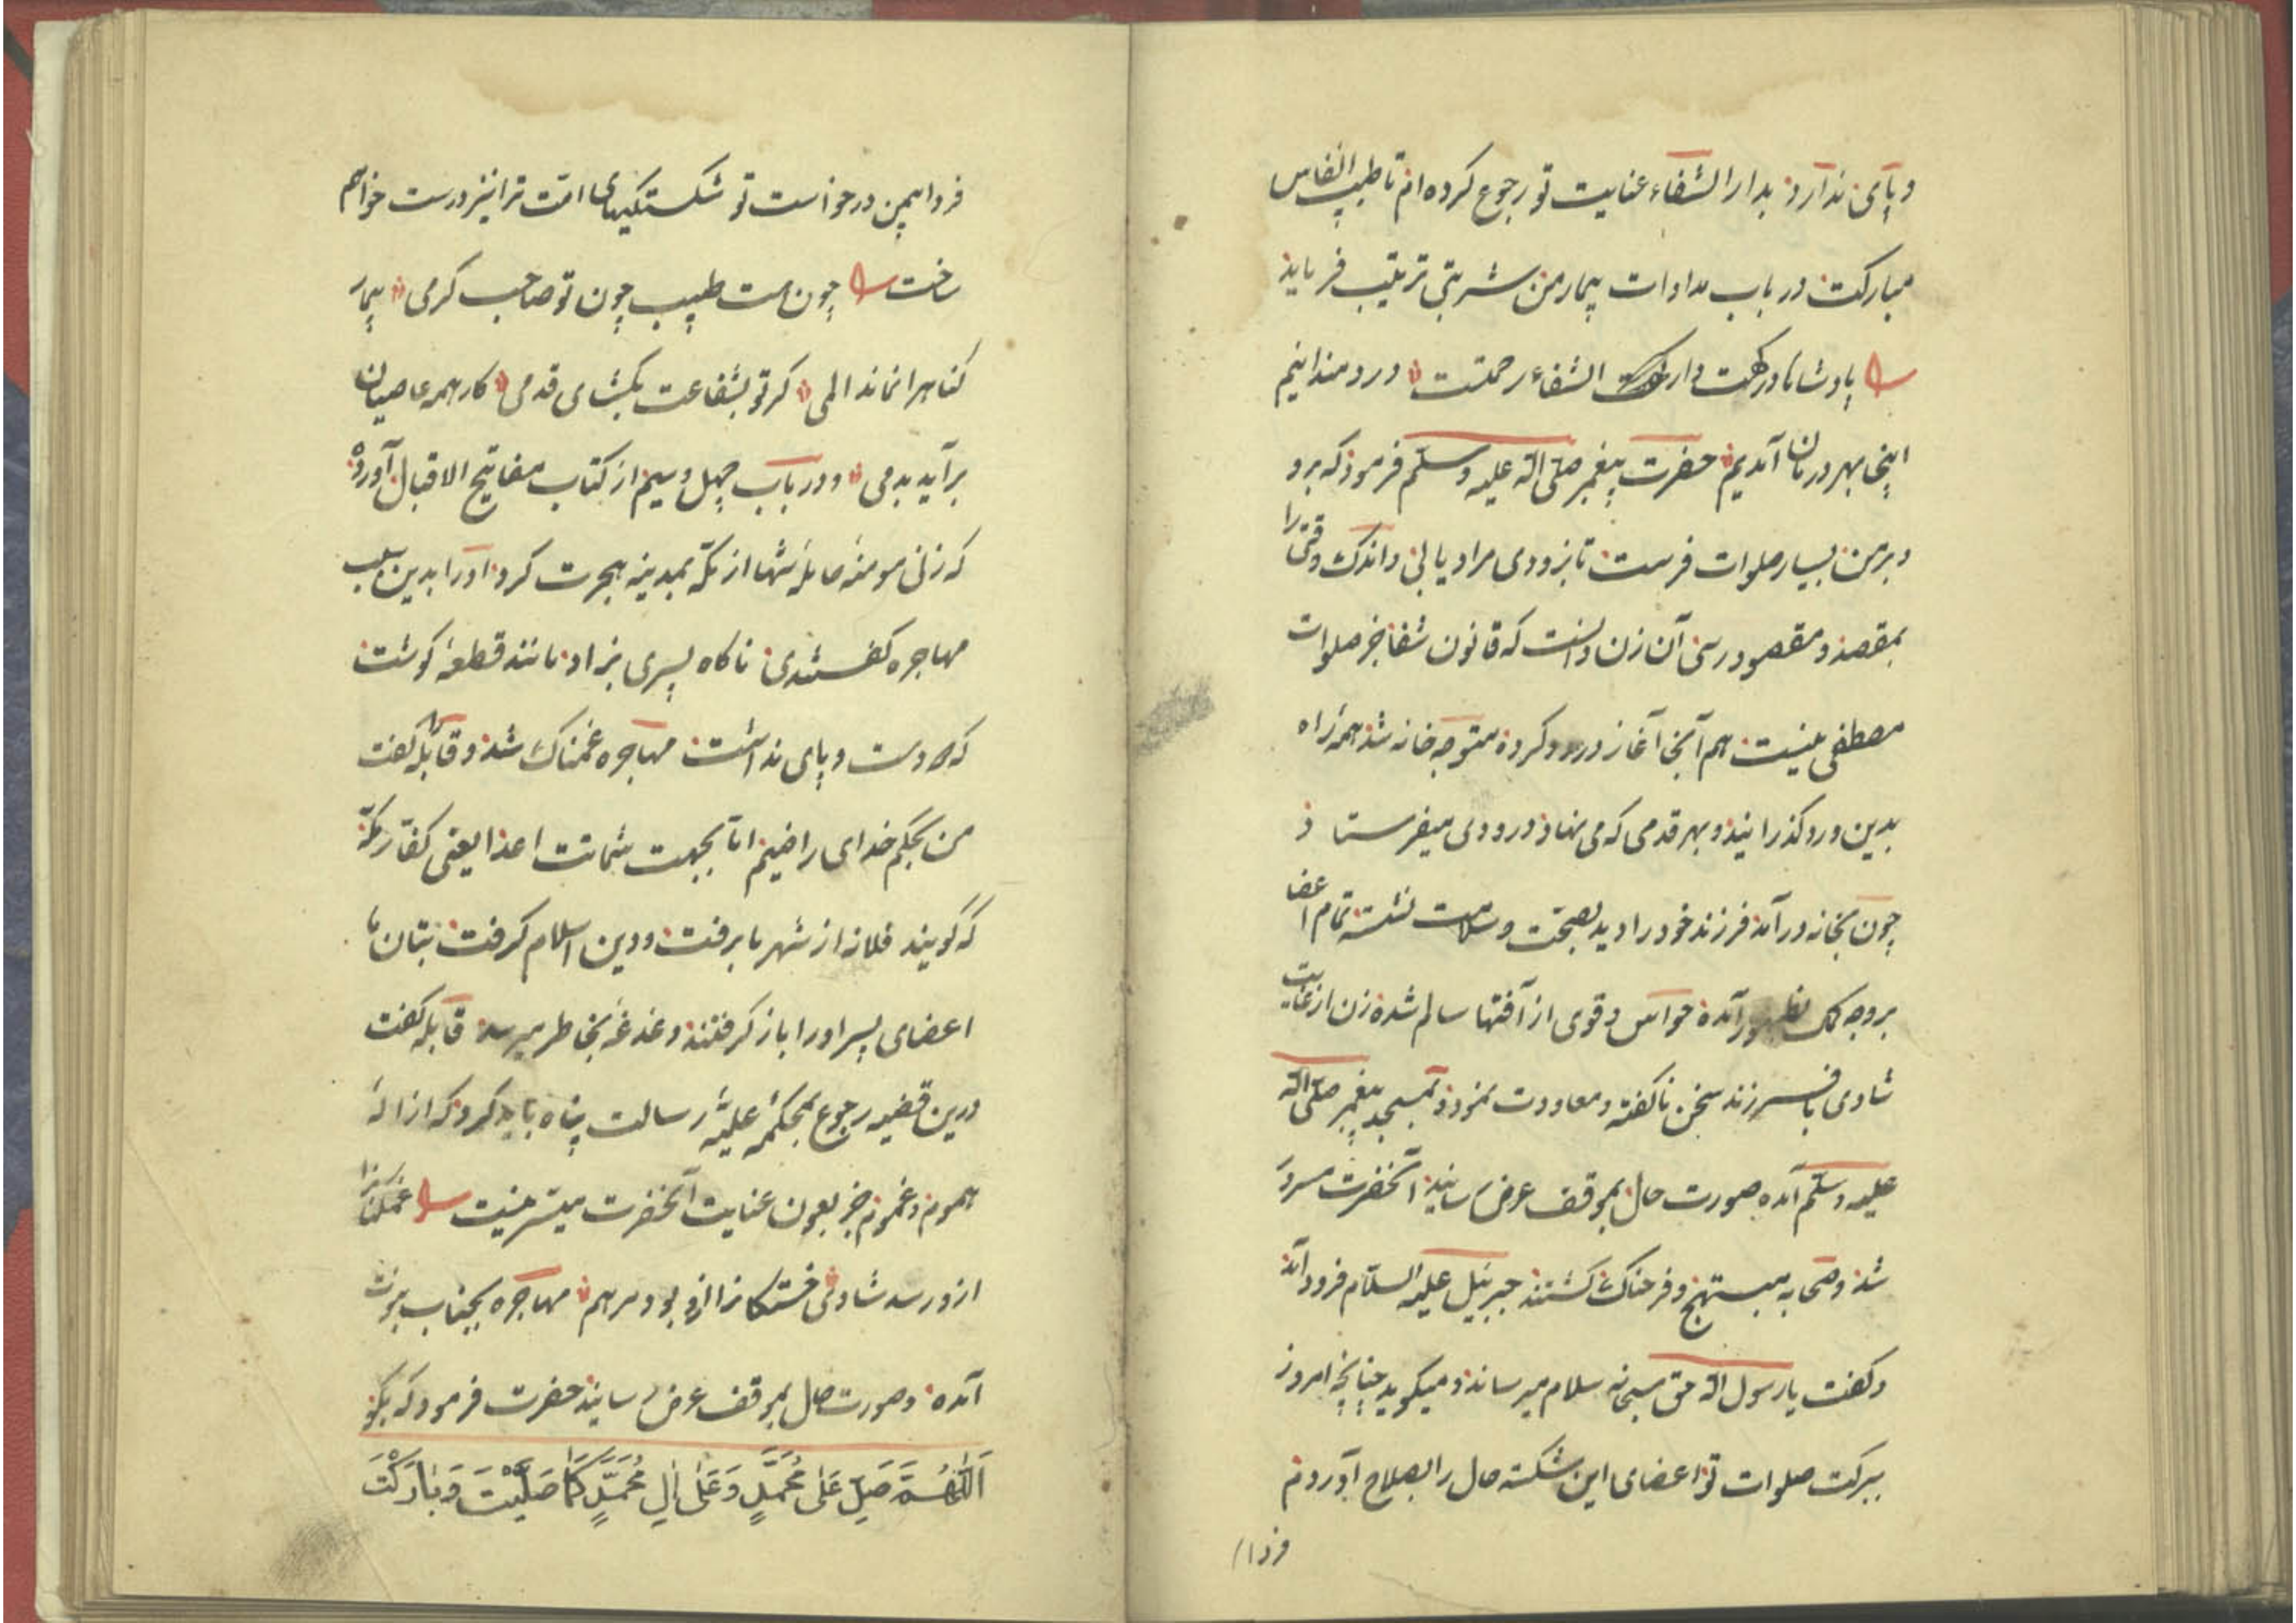 و پای ندارد بدار الشفاء عنایت تو رجوع کرده ام تا طبیب انفاس
مبارکت در باب مداوات بیمار من شربتی ترتیب فرماید
پادشاها درکهت دار الشفاء رحمتست دردمندانیم
اینجا بهر درمان آمدیم حضرت پیغمبر صلی الله علیه وسلم فرمود که برو
و بر من بسیار صلوات فرست تا بزودی مراد یابی و اندک وقتی را
بمقصد و مقصود رسی آن زن دانست که قانون شفا جز صلوات
مصطفی نیست هم آنجا آغاز درود کرده متوجه خانه شد همه راه
بدین ورد کذرانید و بهر قدمی که می نهاد درودی میفرستاد
چون بخانه درآمد فرزند خود را دید بصحت و سلامت نشسته تمام اعضا
بروجه بظهور آمده حواس و قوی از آفتها سالم شده زن از غایت
شادی با فرزند سخن ناکفته و معاودت نموده بمسجد پیغمبر صلی الله
علیه وسلم آمده صورت حال بموقف عرض رسانید آنحضرت مسرور
شد و صحابه مبتهج و فرحناک کشتند جبرئیل علیه السلام فرود آمد
و کفت یا رسول الله حق سبحانه سلام میرساند و میکوید چنانچه امروز
ببرکت صلوات تو اعضای این شکسته حال را بصلاح آوردم
فردا
فردا همین درخواست تو شکستکیهای امت ترا نیز درست خواهم
ساخت چون هست طبیب چون تو صاحب کرمی بیمار
کناهرا نماند المی کر تو بشفاعت بکشای قدمی کار همه عاصیان
برآید بدمی و در باب چهل و سیم از کتاب مفاتیح الاقبال آورده
که زنی مومنه حامله تنها از مکه بمدینه هجرت کرد او را بدین سبب
مهاجره کفتندی ناکاه پسری بزاد مانند قطعه کوشت
که دست و پای نداشت مهاجره غمناک شد و قابله کفت
من بحکم خدای راضیم اما بجهت شماتت اعدا یعنی کفار مکه
که گویند فلانه از شهر ما برفت و دین اسلام کرفت بتان ما
اعضای پسر او را باز کرفتند دغدغه بخاطر میرسد قابله کفت
درین قضیه رجوع بمحکمه علیه رسالت پناه باید کرد که ازاله
هموم و غموم جز بعون عنایت آنحضرت میسر نیست غمکنانرا
ازو رسد شادی خستکانرا ازو بود مرهم مهاجره بجناب نبوت
آمده و صورت حال بموقف عرض رسانید حضرت فرمود که بکو
اَللّٰهُمَّ صَلِّ عَلٰى مُحَمَّدٍ وَعَلٰى اٰلِ مُحَمَّدٍ كَمَا صَلَّيْتَ وَبَارَكْتَ